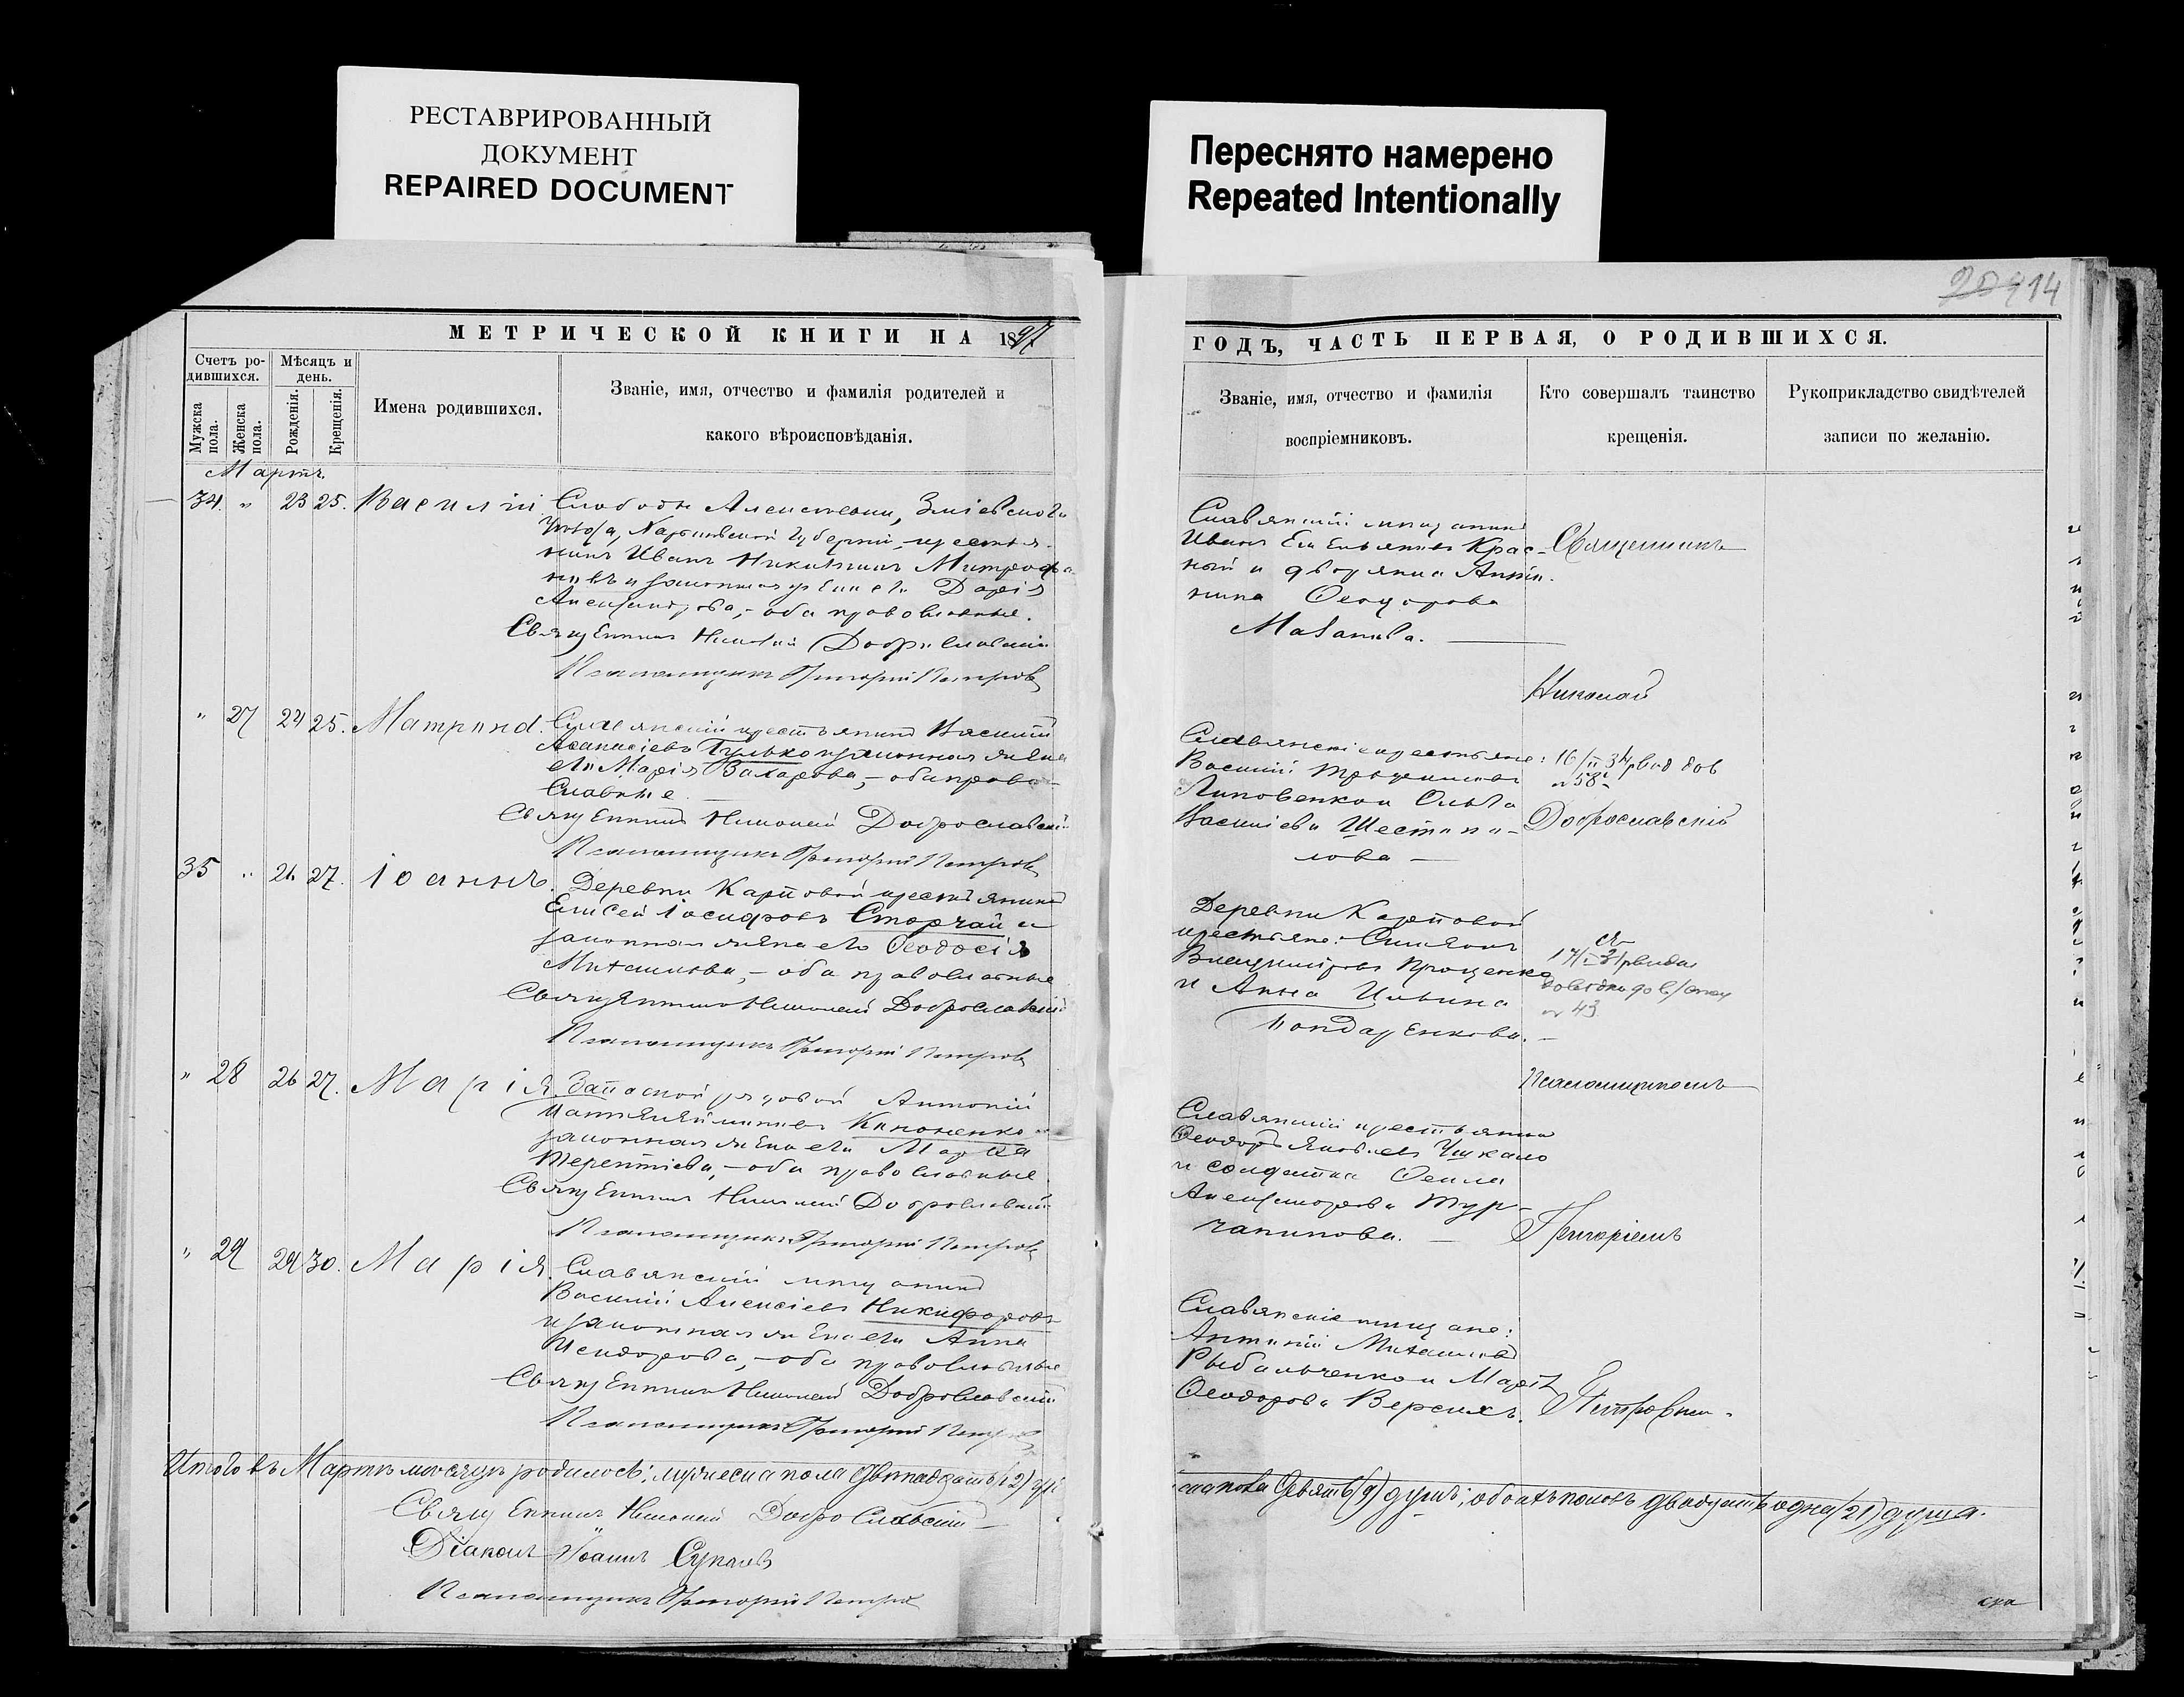 РЕСТАВРИРОВАННЫЙ
ДОКУМЕНТ
REPAIRED DOCUMENT
Переснято намерено
Repeated Intentionally
14
МЕТРИЧЕСКОЙ КНИГИ НА 1897
Счетъ ро-
дившихся.
Мѣсяцъ и
день.
Мужска
пола.
Женска
пола.
Рожденія.
Крещенія.
Имена родившихся.
Званіе, имя, отчество и фамилія родителей и
какого вѣроисповѣданія.
Мартъ.
34. " 23 25. Василій
Слободы Алексѣевки, Зміевскаго
уѣзда, Харьковской губерніи, крестья-
нинъ Иванъ Никитинъ Митрофа-
новъ и законная жена его Дарія
Александрова, - оба православные.
Священникъ Николай Доброславскій
Псаломщикъ Григорій Петровъ
" 27 24 25. Матрона.
Славянскій крестьянинъ Василій
Аѳанасіевъ Гулько и законная жена
его Марія Захарова, - оба право-
славные
Священникъ Николай Доброславскій
Псаломщикъ Григорій Петровъ
35 " 26 27. Іоаннъ.
Деревни Карповой крестьянинъ
Елисей Іосифовъ Сторчай и
законная жена его Ѳеодосія
Михаилова, - оба православные
Священникъ Николай Доброславскій
Псаломщикъ Григорій Петровъ
" 28 26 27. Марія.
Запасной рядовой Антоній
Пантелеймоновъ Кононенко и
законная жена его Марѳа
Терентіева, - оба православные.
Священникъ Николай Доброславскій
Псаломщикъ Григорій Петровъ
" 29 29 30. Марія.
Славянскій мѣщанинъ
Василій Алексіевъ Никифоровъ
и законная жена его Анна
Исидорова, - оба православные
Священникъ Николай Доброславскій
Псаломщикъ Григорій Петровъ
Итого въ Мартѣ мѣсяцѣ родилось: мужеска пола двѣнадцать (12)
Священникъ Николай Доброславскій
Діаконъ Іоаннъ
Псаломщикъ Григорій Петровъ
ГОДЪ, ЧАСТЬ ПЕРВАЯ, О РОДИВШИХСЯ.
Званіе, имя, отчество и фамилія
воспріемниковъ.
Кто совершалъ таинство
крещенія.
Рукоприкладство свидѣтелей
записи по желанію.
Славянскій мѣщанинъ
Иванъ Емельяновъ Крас-
ный и дворянка Антони-
нина Ѳеодорова
Священникъ
Николай
Славянскіе крестьяне:
Василій
Липовенко и Ольга
Василіева Шестопа-
лова -
Доброславскій
Деревни Карповой
крестьяне: Симеонъ
Проценко
и Анна Ильина
Бондаренкова. -
№ 43
Псаломщикомъ
Славянскій крестьянинъ
Ѳеодоръ Яковлевъ Чикало
и солдатка Ѳекла
Александрова Тур-
чанинова. -
Григоріемъ
Славянскіе мѣщане:
Антоній Михаиловъ
Рыбальченко и Марія
Ѳеодорова Верскихъ.
Петровымъ.
ска пола девять (9) душъ; обоихъ половъ двадцать одна (21) душа.